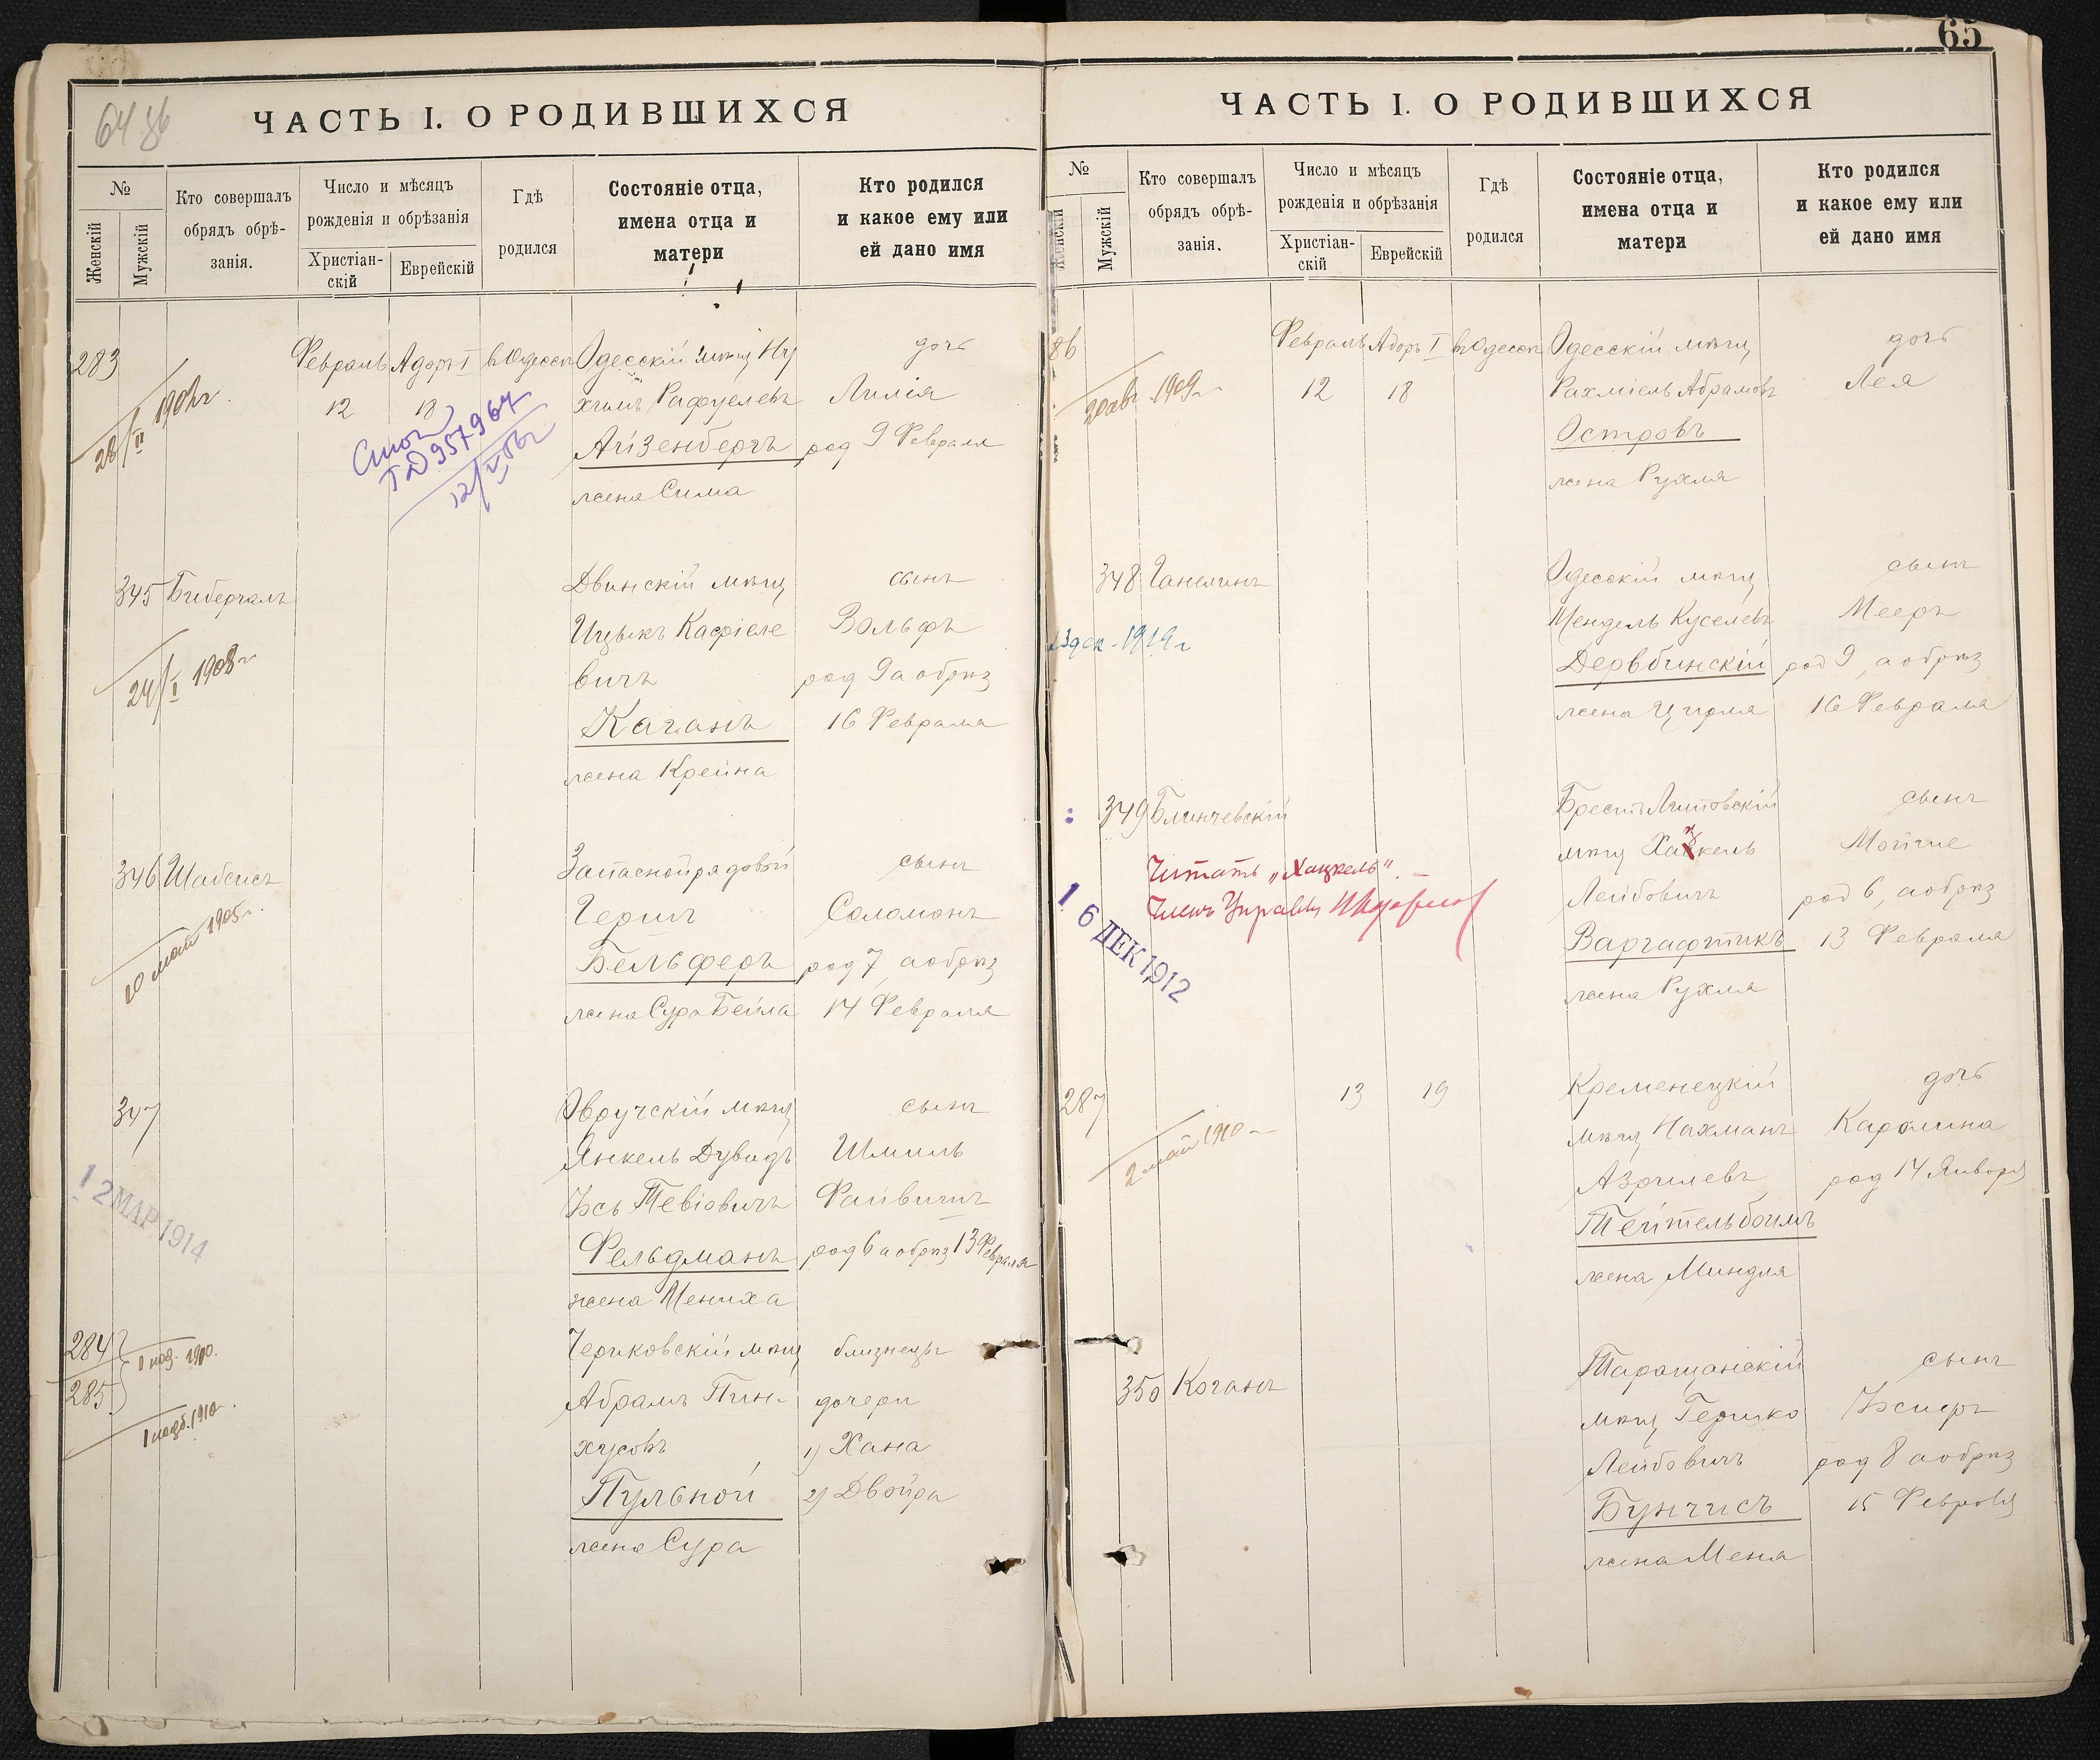 64 86
ЧАСТЬ I. О РОДИВШИХСЯ
№
Женскій
Мужскій
Кто совершалъ
обрядъ обрѣ-
занія.
Число и мѣсяцъ
рожденія и обрѣзанія
Христіан-
скій
Еврейскій
Гдѣ
родился
Состояніе отца,
имена отца и
матери
Кто родился
и какое ему или
ей дано имя
283
Февраль Адоръ I въ Одессѣ Одесскій мѣщ Ну
дочь
12
18
химъ Рафуелевъ
Лилія
Айзенбергъ
род 9 Февраля
жена Сима
957964
345 Бибергалъ
Двинскій мѣщ
сынъ
Ицыкъ Касріеле
Вольфъ
вичъ
род 9 а обрѣз
24/I 1908 г
Каганъ
16 Февраля
жена Крейна
346 Шабсисъ
Запасной рядовой
сынъ
Гершъ
Соломонъ
20 май 1905 г.
Бельферъ
род 7, а обрѣз
жена Сура Бейла
14 Февраля
347
Овручскій мѣщ
сынъ
Янкель Дувидъ
Шмиль
Іось Тевіовичъ
Файвишъ
12 МАР 1914
Фельдманъ
род 6 а обрѣз 13 Февраля
жена Мениха
284
285
1 нояб. 1910.
1 нояб. 1910.
Чериковскій мѣщ
близнецы
Абрамъ Пин-
дочери
хусовъ
1) Хана
Пульной
2) Двойра
жена Сура
65
ЧАСТЬ I. О РОДИВШИХСЯ
№
Женскій
Мужскій
Кто совершалъ
обрядъ обрѣ-
занія.
Число и мѣсяцъ
рожденія и обрѣзанія
Христіан-
скій
Еврейскій
Гдѣ
родился
Состояніе отца,
имена отца и
матери
Кто родился
и какое ему или
ей дано имя
86
Февраль Адоръ I въ Одессѣ Одесскій мѣщ
дочь
20 авг 1909 г
12
18
Рахміель Абрамовъ
Лея
Островъ
жена Рухля
348 Ганелинъ
Одесскій мѣщ
сынъ
Мендель Куселевъ
Мееръ
дек. 1919 г
Дервбинскій
род 9, а обрѣз
жена Цирля
16 Февраля
349 Блинчевскій
Брестъ Литовскій
сынъ
мѣщ Хацкель
Мойше
Читать „Хацкель". –
Членъ Управы
Лейбовичъ
род 6, а обрѣз
16 ДЕК 1912
Варгафтикъ
13 Февраля
жена Рухля
287
13
19
Кременецкій
дочь
2 май 1910
мѣщ Нахманъ
Каролина
Азрилевъ
род 14 Января
Тейтельбоимъ
жена Миндля
350 Коганъ
Таращанскій
сынъ
мѣщ Гершко
Іосифъ
Лейбовичъ
род 8 а обрѣз
Бунчисъ
15 Февраля
жена Меня